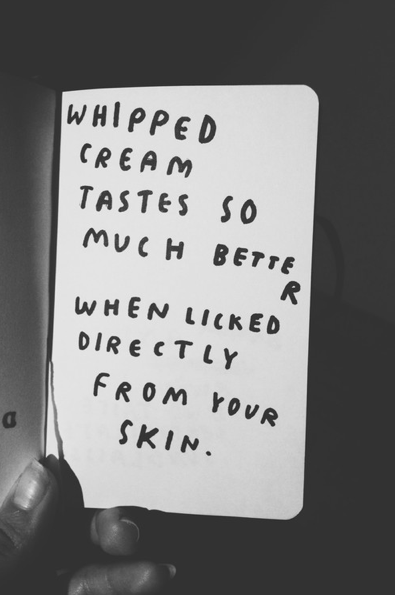 WHIPPED
CREAM
TASTES SO
MUCH BETTE
R
WHEN LICKED
DIRECTLY
FROM YOUR
SKIN.
a